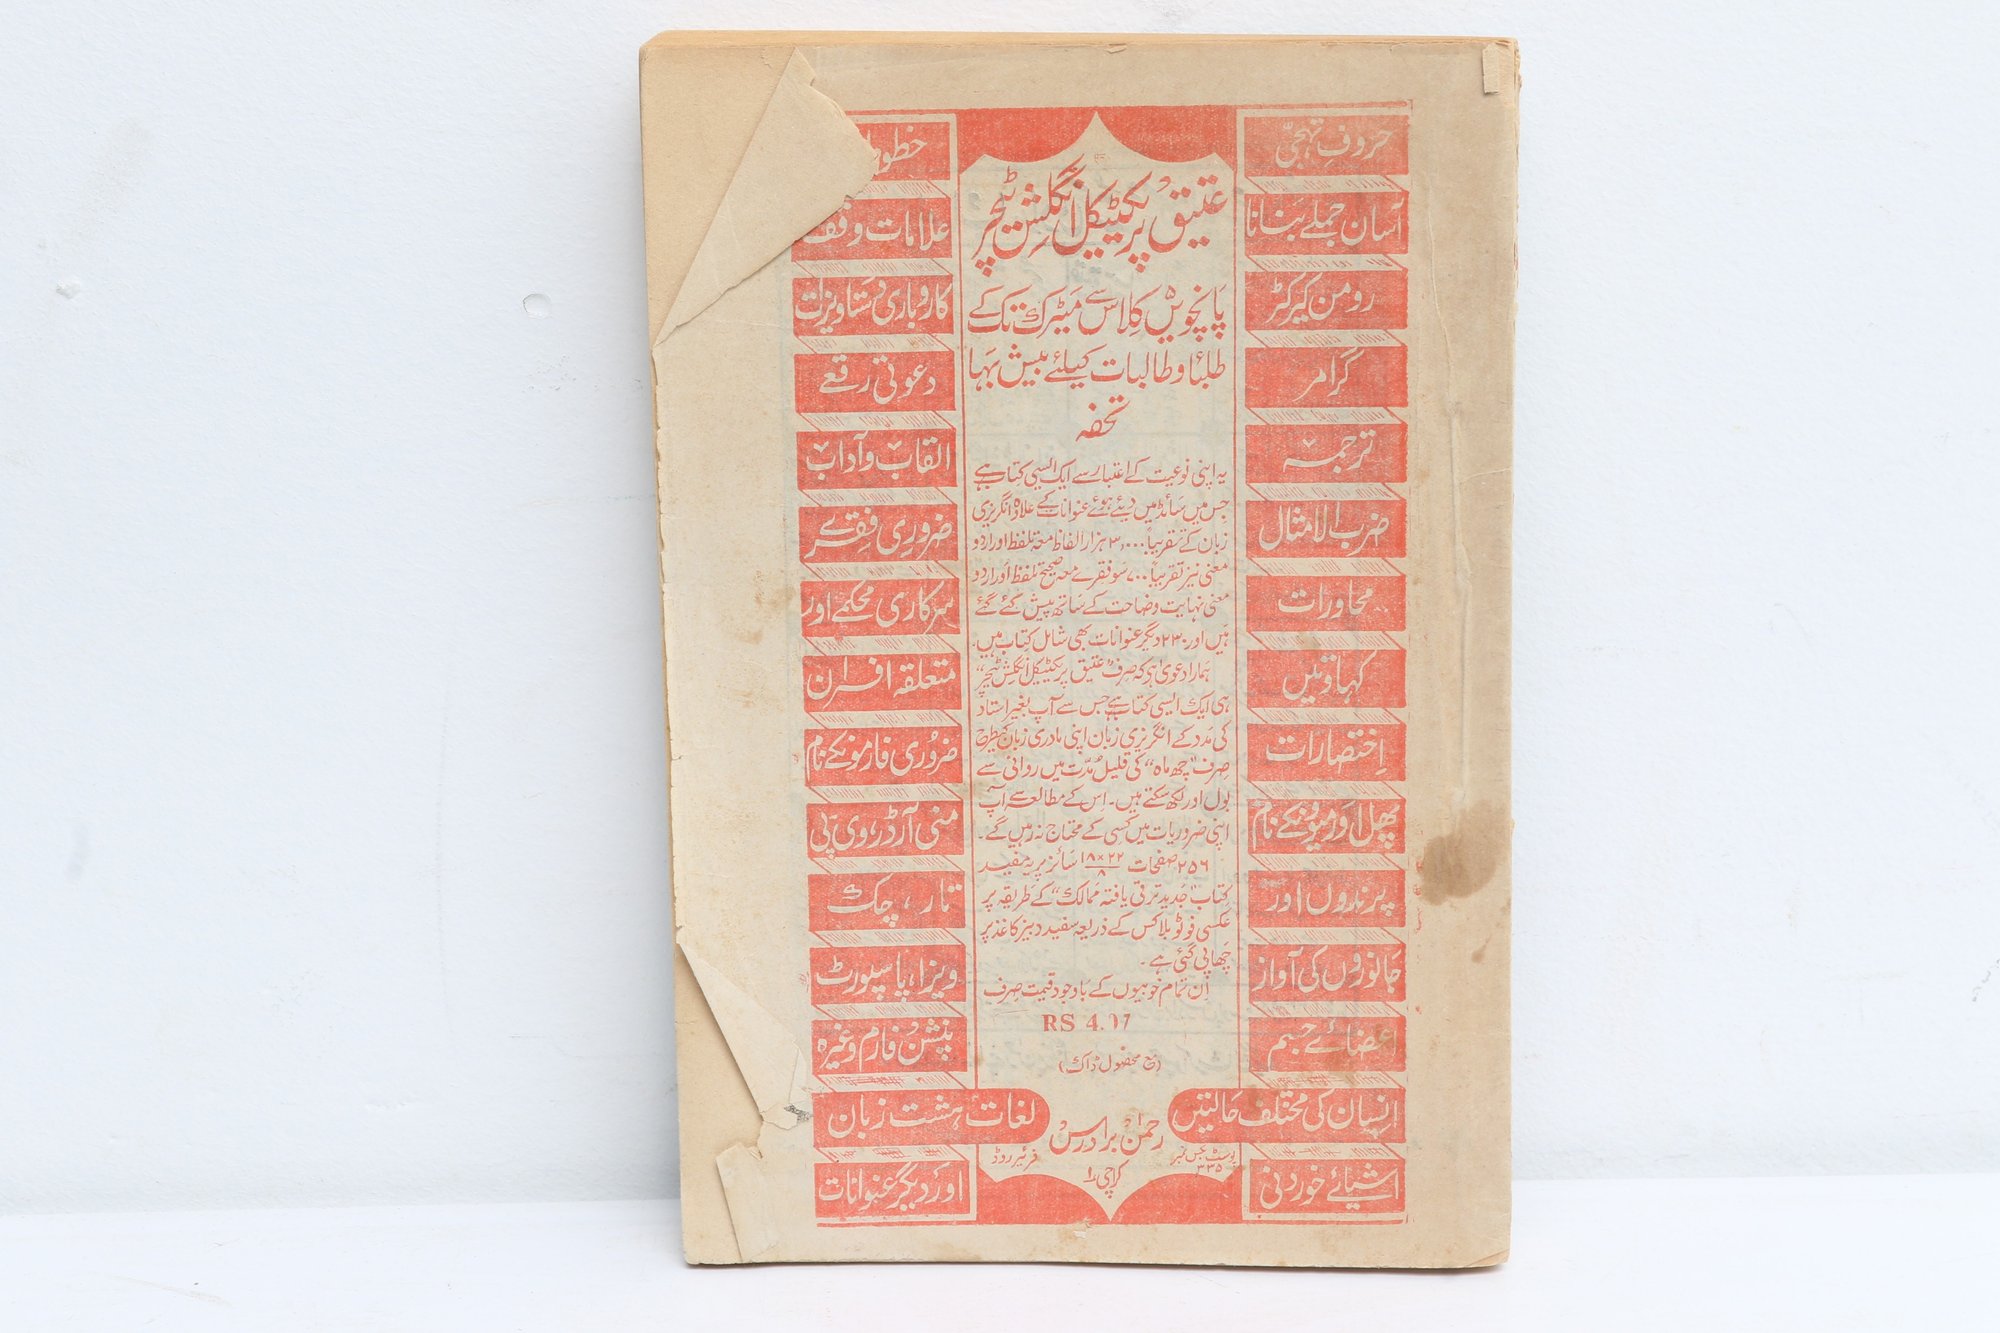 حروفِ تہجّی
آسان جملے بنانا
رومن کیرکٹر
گرامر
ترجمہ
ضرب الامثال
محاورات
کہاوتیں
اِختصارات
پھل اور میوؤنکے نام
پرندوں اور
جانوروں کی آواز
اعضائے جسم
اِنسان کی مختلف حالتیں
اشیائے خوردنی
عتیق پریکٹیکل انگلش ٹیچر
پانچویں کلاس سے میٹرک تک کے
طلبأ و طالبات کیلئے بیش بَہا
تحفہ
یہ اپنی نوعیت کے اعتبار سے ایک ایسی کتاب ہے
جس میں سائڈ میں دیئے ہوئے عنوانات کے علاوہ انگریزی
زبان کے تقریباً ۳۰۰۰ ہزار الفاظ معہ تلفظ اور اردو
معنی نیز تقریباً ۷۰۰ سو فقرے معہ صحیح تلفظ اور اردو
معنی نہایت وضاحت کے ساتھ پیش کئے گئے
ہیں اور ۲۳۰ دیگر عنوانات بھی شامل کتاب ہیں۔
ہمارا دعویٰ ہے کہ صرف "عتیق پریکٹیکل انگلش ٹیچر"
ہی ایک ایسی کتاب ہے جس سے آپ بغیر استاد
کی مدد کے انگریزی زبان اپنی مادری زبان کیطرح
صرف "چھ ماہ" کی قلیل مُدّت میں روانی سے
بول اور لکھ سکتے ہیں۔ اِس کے مطالعہ سے آپ
اپنی ضروریات میں کسی کے محتاج نہ رہیں گے۔
۲۵۶ صفحات ۱۸×۲۲/۸ سائز پر یہ مفید
کتاب "جدید ترقی یافتہ ممالک" کے طریقہ پر
عکسی فوٹو بلاکس کے ذریعہ سفید دبیز کاغذ پر
چھاپی گئی ہے۔
اِن تمام خوبیوں کے باوجود قیمت صرف
RS 4.
(مع محصول ڈاک)
رحمٰن برادرس
پوسٹ بکس نمبر ۳۳۵
فریئر روڈ
کراچی ۱
خطو
علامات وقف
کاروباری دستاویزات
دعوتی رقعے
القاب و آداب
ضروری فقرے
سرکاری محکمے اور
متعلقہ افسران
ضروری فارمونکے نام
منی آرڈر، وی پی
تار، چک
ویزا، پاسپورٹ
پنشن فارم وغیرہ
لغاتِ ہشت زبان
اور دیگر عنوانات